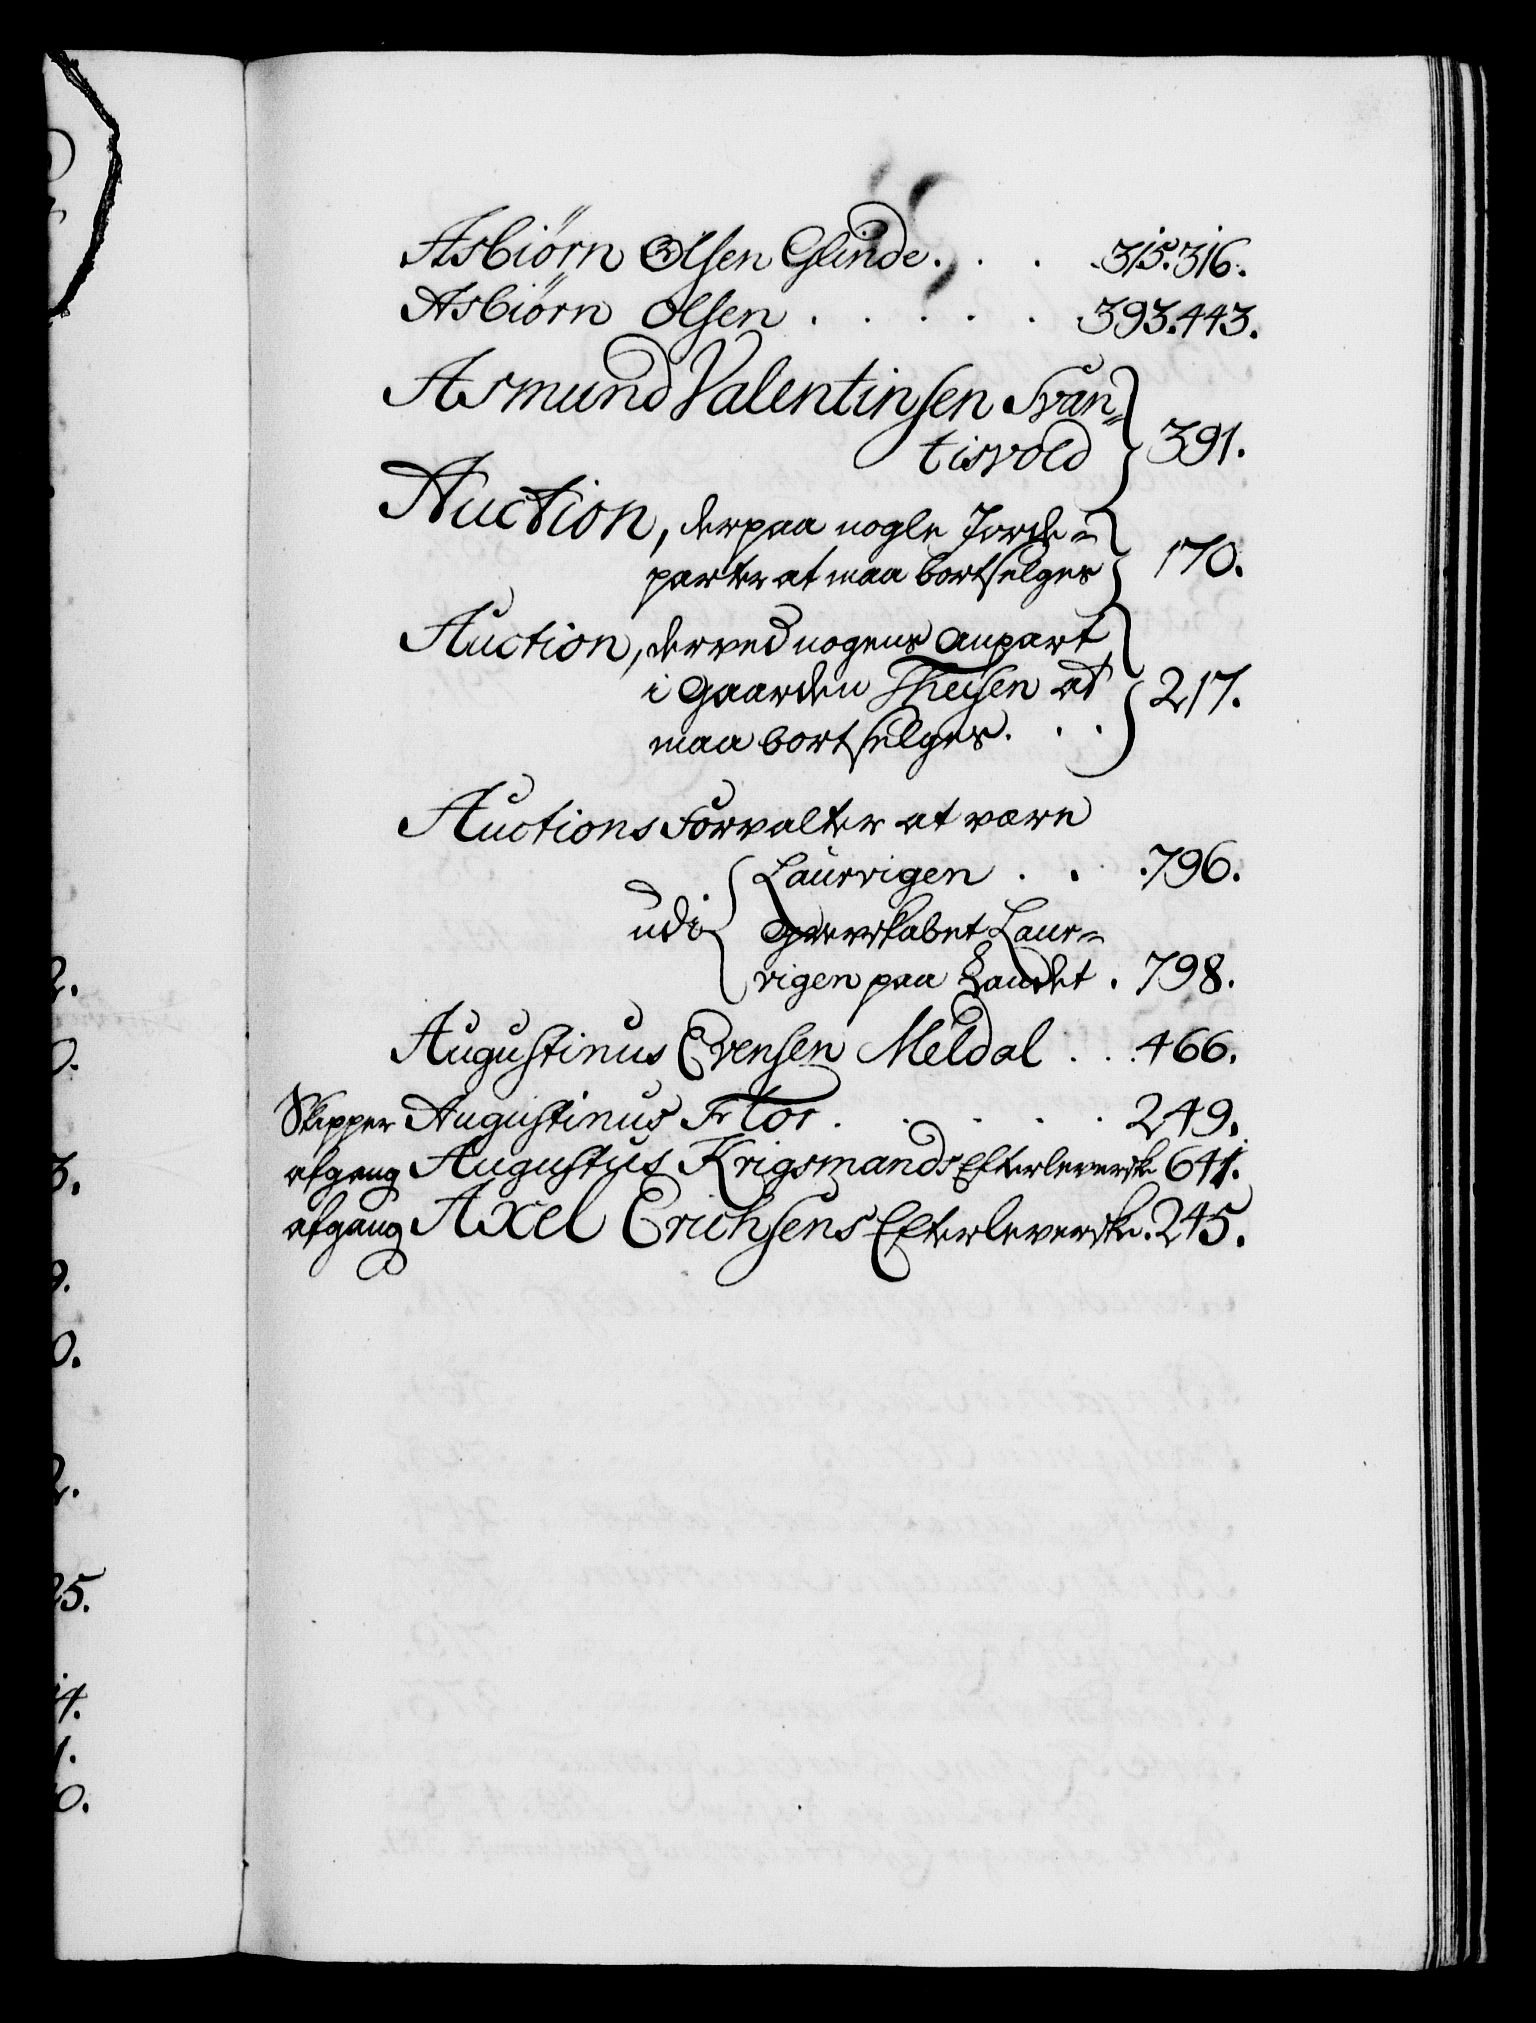 Asbiörn Olsen Glinde . . . 315. 316.
Asbiörn Olsen . . . . . 393. 443.
Asmund Valentinsen Svan=
tisvold } 391.
Auction, derpaa nogle Jorde=
parter at maa bortselges } 170.
Auction, derved nogens anpart
i Gaarden Theisen at } 217.
maa bortselges. . .
Auctions Forvalter at være
Laurvigen . . . 796.
udi
Grevskabet Laur=
vigen paa Landet . 798.
Augustinus Evensen Meldal . . . 466.
Skipper Augustinus Flor . . . . . 249.
afgang Augustus Krigsmands Efterleverske 641.
afgang Axel Erichsens Efterleverske. 245.